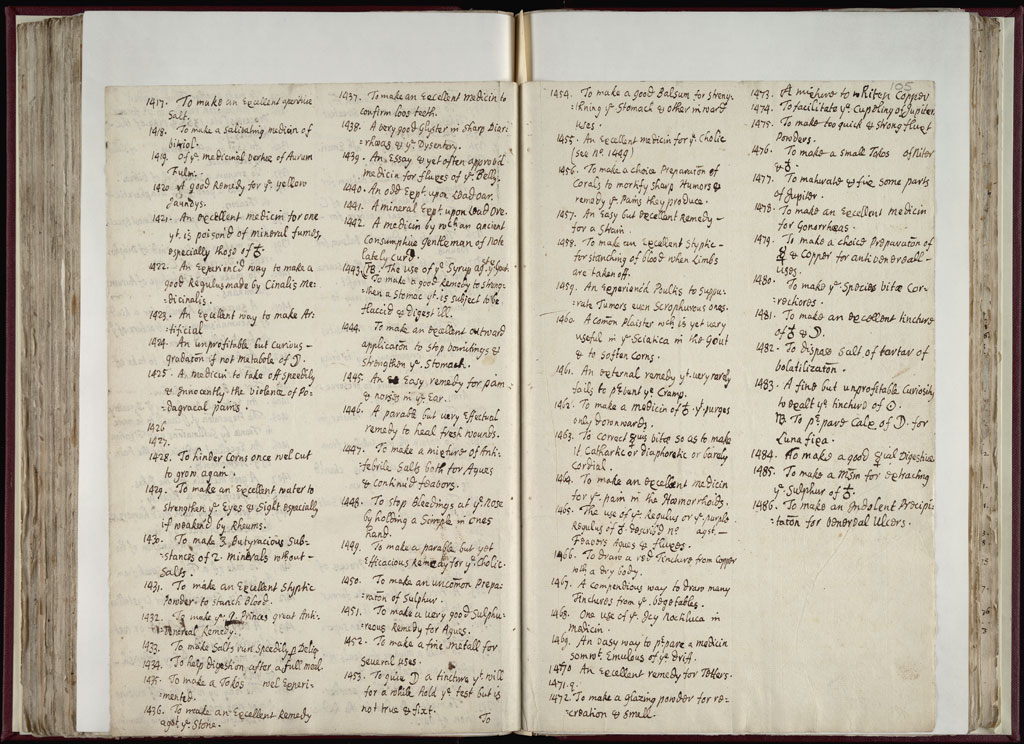 1417. To make an Excellent aperitive
Salt.
1418. To make a salivating medicin of
vitriol.
1419. Of ye. medicinal vertue of Aurum
Fulm.
1420 A good Remedy for ye. yellow
Jaundys.
1421. An excellent medicin for one
yt. is poison'd of mineral fumes,
especially those of ☿.
1422. An Experienc'd way to make a
good Regulus made by Cinalis Me-
:dicinalis.
1423. An Excellent way to make Ar-
:tificial
1424. An unprofitable but curious -
gradation if not metabole of ☽.
1425. A medicin to take off speedily
& Innocently the violence of Po-
:dagracal pains.
1426
1427.
1428. To hinder Corns once wel cut
to grow again.
1429. To make an Excellent water to
strengthen ye. Eyes & Sight especially
if weaken'd by Rheums.
1430. To make Butyracious Sub-
:stances of 2. minerals without -
Salts.
1431. To make an Excellent Styptic
Powder to stanch Blood.
1432. To make ye. Princes great Anti-
:Venereal Remedy.
1433. To make Salts run Speedily p Deliq.
1434. To help digestion after a full meal
1435. To make a Tokos wel Experi-
:mented.
1436. To make an Excellent Remedy
agst. ye. Stone.
1437. To make an Excellent medicin to
confirm loos teeth.
1438. A very good Glyster in sharp Diar-
:rhœas & ye. Dysentery.
1439. An Essay & yet often approv'd
medicin for fluxes of ye. Belly.
1440. An old Expt. upon Lead oar.
1441. A mineral Expt. upon Lead Ore.
1442. A medicin by wch an ancient
Consumptive Gentleman of Note
lately cur'd.
1443. NB. The use of ye. Syrup agst. ye Gout.
To make a good Remedy to streng-
:then a Stomac yt. is subject to be
flaccid & digest ill.
1444. To make an excellent outward
application to stop vomitings &
strengthen ye. Stomach.
1445. An Easy remedy for pain
& noises in ye. Ear.
1446. A parable but very Effectual
remedy to heal fresh wounds.
1447. To make a mixture of Anti-
:febrile Salts both for Agues
& continu'd feavors.
1448. To stop Bleedings at ye. Nose
by holding a Simple in ones
hand.
1449. To make a parable but yet
Efficacious Remedy for ye. Cholic.
1450. To make an uncom̃on Prepa-
:ration of Sulphur.
1451. To make a very good Sulphu-
:reous Remedy for Agues.
1452. To make a fine metall for
several uses.
1453. To give ☽ a tincture yt. will
for a while hold ye. test but is
not true & fixt.
To
85
1454. To make a good Balsum for streng-
:thning ye. Stomach & other inward
uses.
1455. An Excellent medicin for ye. Cholic
(see no. 1449)
1456. To make a choice Preparation of
Corals to mortify sharp Humors &
remedy ye. Pains they produce.
1457. An Easy but Excellent Remedy -
for a Strain.
1458. To make an Excellent Styptic -
for stanching of blood when Limbs
are taken off.
1459. An Experienc'd Poultis to Suppu-
:rate Tumors even Scrophulous ones.
1460. A com̃on Plaister wch is yet very
useful in ye. Sciatica in the Gout
& to soften Corns.
1461. An external remedy yt. very rarely
fails to p'event ye. Cramp.
1462. To make a medicin of ☿ yt. purges
only downwards.
1463. To correct ☿us vitæ so as to make
it Cathartic or Diaphoretic or barely
Cordial.
1464. To make an excellent medicin
for ye. pain in the Hæmorrhoids.
1465. The use of ye. Regulus or ye. purple
Regulus of describ'd no. agst. -
Feavors Agues & fluxes.
1466. To draw a red Tincture from Copper
with a dry body.
1467. A compendious way to draw many
Tinctures from ye. vegetables.
1468. One use of ye. Icy Noctiluca in
medicin.
1469. An easy way to p'pare a medicin
somwt. Emulous of ye. driff.
1470 An Excellent remedy for Tetters.
1471. q.
1472. To make a glazing powder for re-
:creation & smell.
1473. A mixture to whiten Copper
1474. To facilitate ye. Cupelling of Jupiter.
1475. To make too quick & strong fluxt
Powders.
1476. To make a small Tokos of Niter
&
1477. To maturate & fix some parts
of Jupiter.
1478. To make an Excellent medicin
for Gonorrhœas.
1479. To make a choice Preparation of
☿ & Copper for anti venereall -
uses.
1480. To make ye. Species vitæ Cor-
:rectiores.
1481. To make an excellent tincture
of & ☽.
1482. To dispose Salt of tartar of
volatilization.
1483. A fine but unprofitable Curiosity
to exalt ye. tincture of ☉.
NB To p'pare Calx of ☽. for
Luna fixa.
1484. To make a good Digestive
1485. To make a Mẽm for extracting
ye. Sulphur of
1486. To make an Indolent Precipi-
:tation for venereal Ulcers.